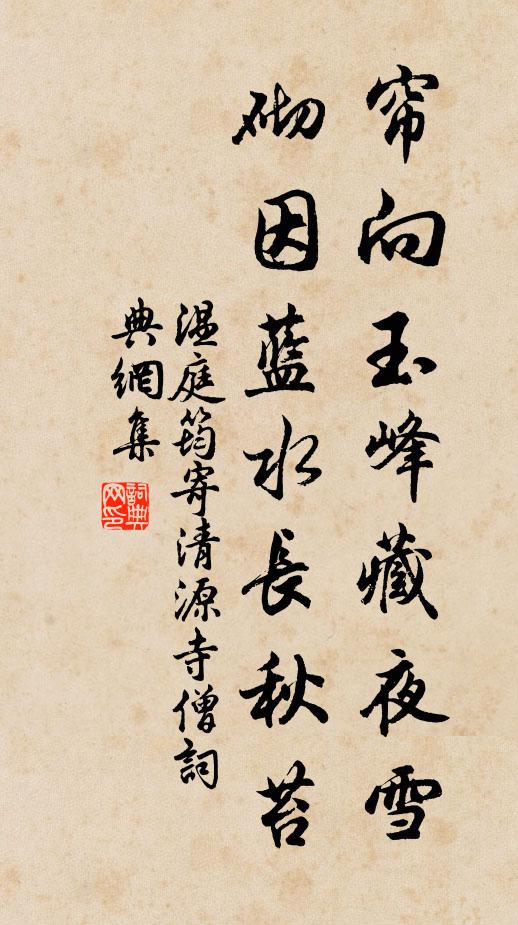 帘向玉峰藏夜雪
砌因藍水長秋苔
温庭筠寄清源寺僧詞
典網集
詞典
网印